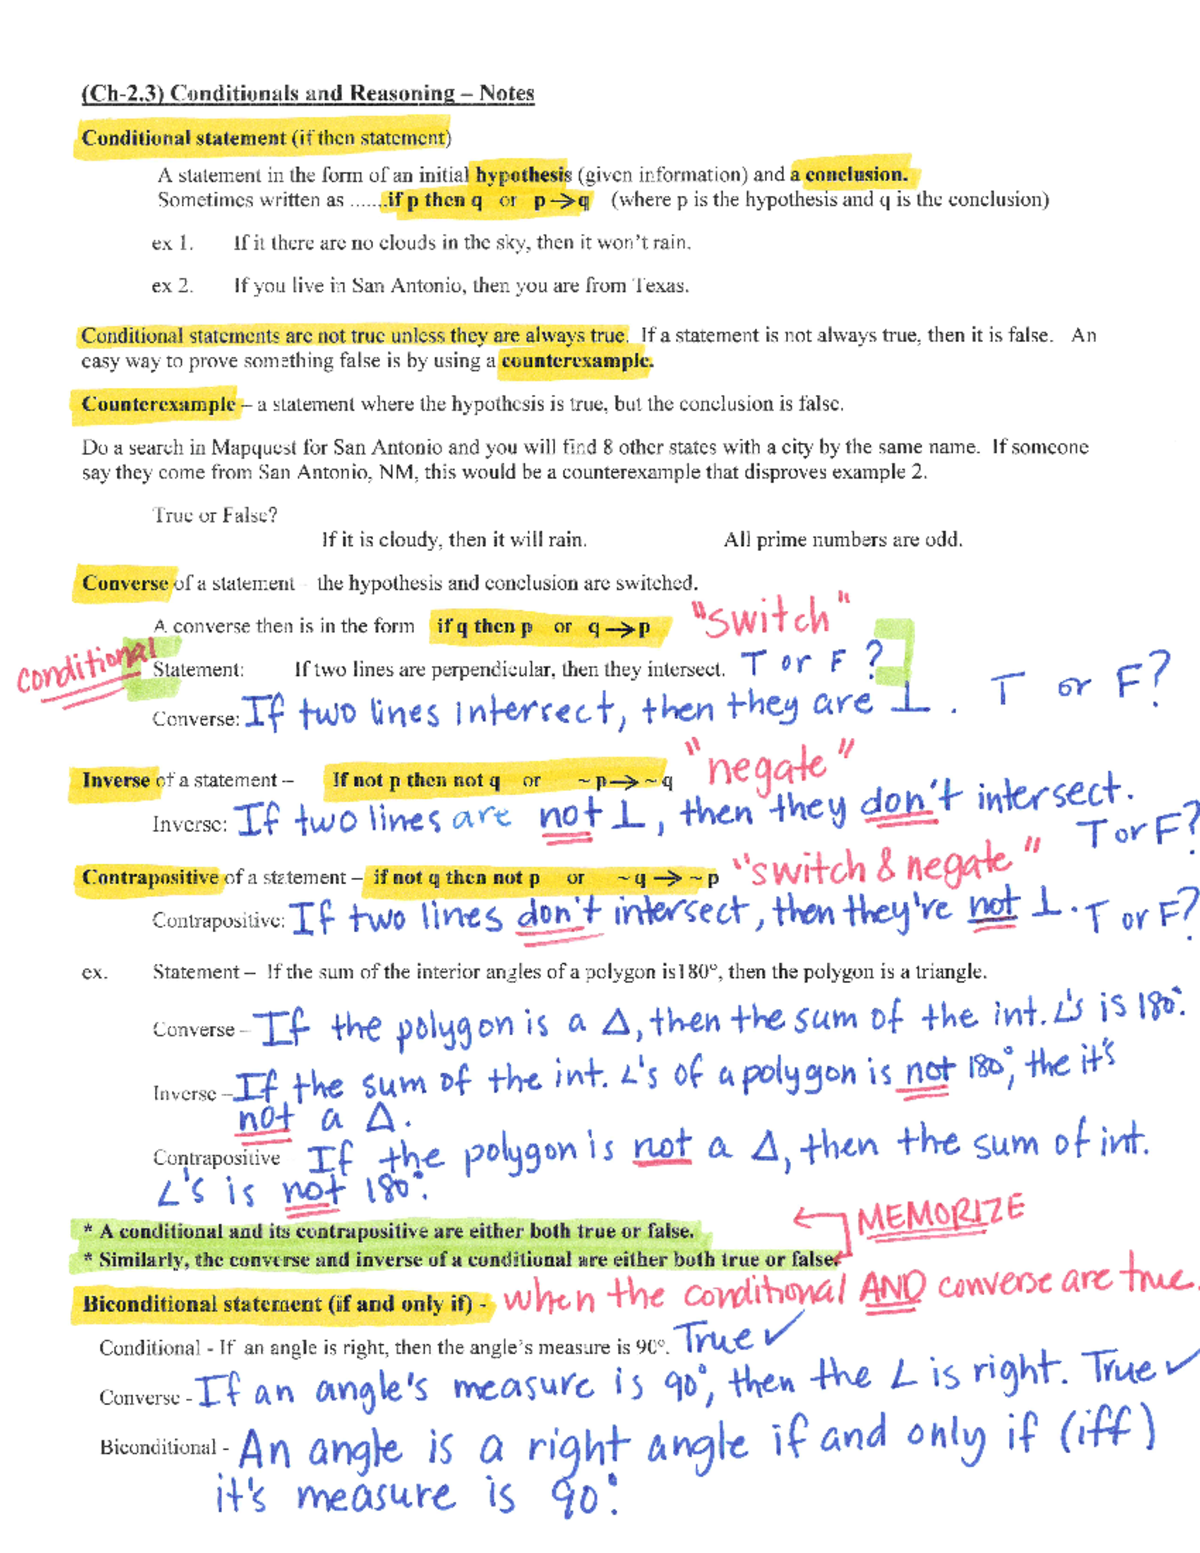 (Ch-2.3) Conditionals and Reasoning – Notes
Conditional statement (if then statement)
A statement in the form of an initial hypothesis (given information) and a conclusion.
Sometimes written as .......if p then q or p→q (where p is the hypothesis and q is the conclusion)
ex 1. If it there are no clouds in the sky, then it won't rain.
ex 2. If you live in San Antonio, then you are from Texas.
Conditional statements are not true unless they are always true. If a statement is not always true, then it is false. An
easy way to prove something false is by using a counterexample.
Counterexample – a statement where the hypothesis is true, but the conclusion is false.
Do a search in Mapquest for San Antonio and you will find 8 other states with a city by the same name. If someone
say they come from San Antonio, NM, this would be a counterexample that disproves example 2.
True or False?
If it is cloudy, then it will rain. All prime numbers are odd.
Converse of a statement – the hypothesis and conclusion are switched.
A converse then is in the form if q then p or q→p "switch"
conditional Statement: If two lines are perpendicular, then they intersect. T or F?
Converse: If two lines intersect, then they are ⊥. T or F?
Inverse of a statement – If not p then not q or ~p→~q "negate"
Inverse: If two lines are not ⊥, then they don't intersect.
T or F?
Contrapositive of a statement – if not q then not p or ~q→~p "switch & negate"
Contrapositive: If two lines don't intersect, then they're not ⊥. T or F?
ex. Statement – If the sum of the interior angles of a polygon is180°, then the polygon is a triangle.
Converse – If the polygon is a Δ, then the sum of the int. ∠'s is 180°.
Inverse – If the sum of the int. ∠'s of a polygon is not 180°, the it's
not a Δ.
Contrapositive If the polygon is not a Δ, then the sum of int.
∠'s is not 180°.
* A conditional and its contrapositive are either both true or false. MEMORIZE
* Similarly, the converse and inverse of a conditional are either both true or false.
Biconditional statement (if and only if) - when the conditional AND converse are true.
Conditional - If an angle is right, then the angle's measure is 90°. True ✓
Converse - If an angle's measure is 90°, then the ∠ is right. True ✓
Biconditional - An angle is a right angle if and only if (iff)
it's measure is 90°.